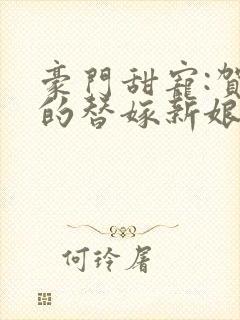 豪門甜寵:賀
的替嫁新娘
何玲屠